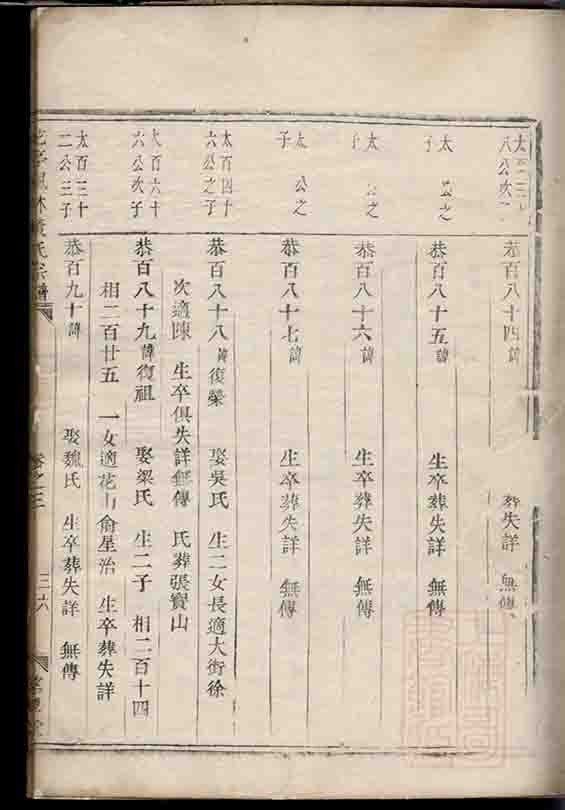 八公次
恭百八十四諱 葬失詳 無傳
太 公之子
恭百八十五諱 生卒葬失詳 無傳
太 公之子
恭百八十六諱 生卒葬失詳 無傳
太 公之子
恭百八十七諱 生卒葬失詳 無傳
太百四十六公之子
恭百八十八諱復榮 娶吳氏 生二女長適大街徐
次適陳 生卒俱失詳無傳 氏葬張寶山
太百六十六公次子
恭百八十九諱復祖 娶梁氏 生二子 相二百十四
相二百廿五 一女適花山俞星治 生卒葬失詳
太百三十二公三子
恭百九十諱 娶魏氏 生卒葬失詳 無傳
氏宗譜 卷之三 三六